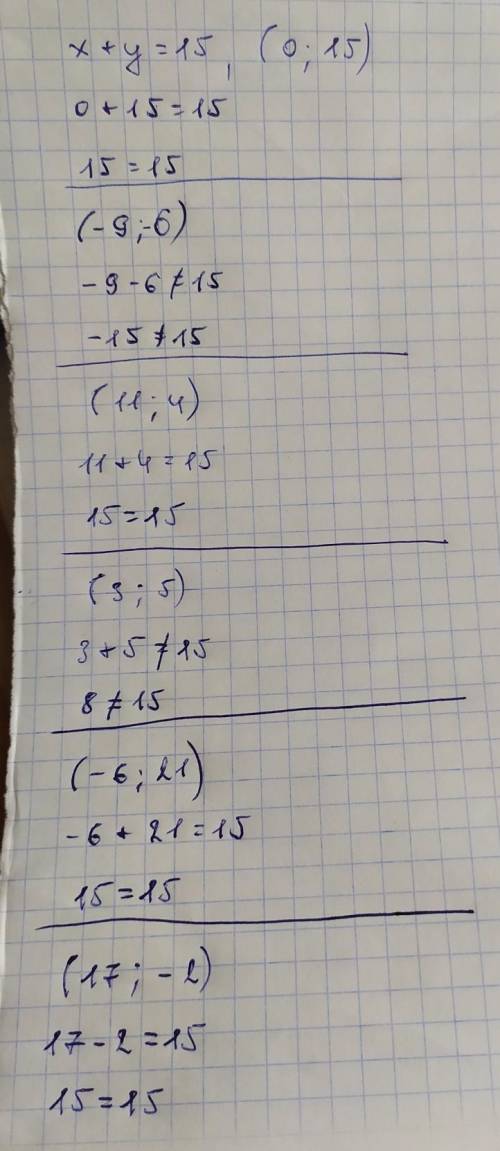 x + y = 15, (0; 15)
0 + 15 = 15
15 = 15
(-9; -6)
-9 - 6 ≠ 15
-15 ≠ 15
(11; 4)
11 + 4 = 15
15 = 15
(3; 5)
3 + 5 ≠ 15
8 ≠ 15
(-6; 21)
-6 + 21 = 15
15 = 15
(17; -2)
17 - 2 = 15
15 = 15